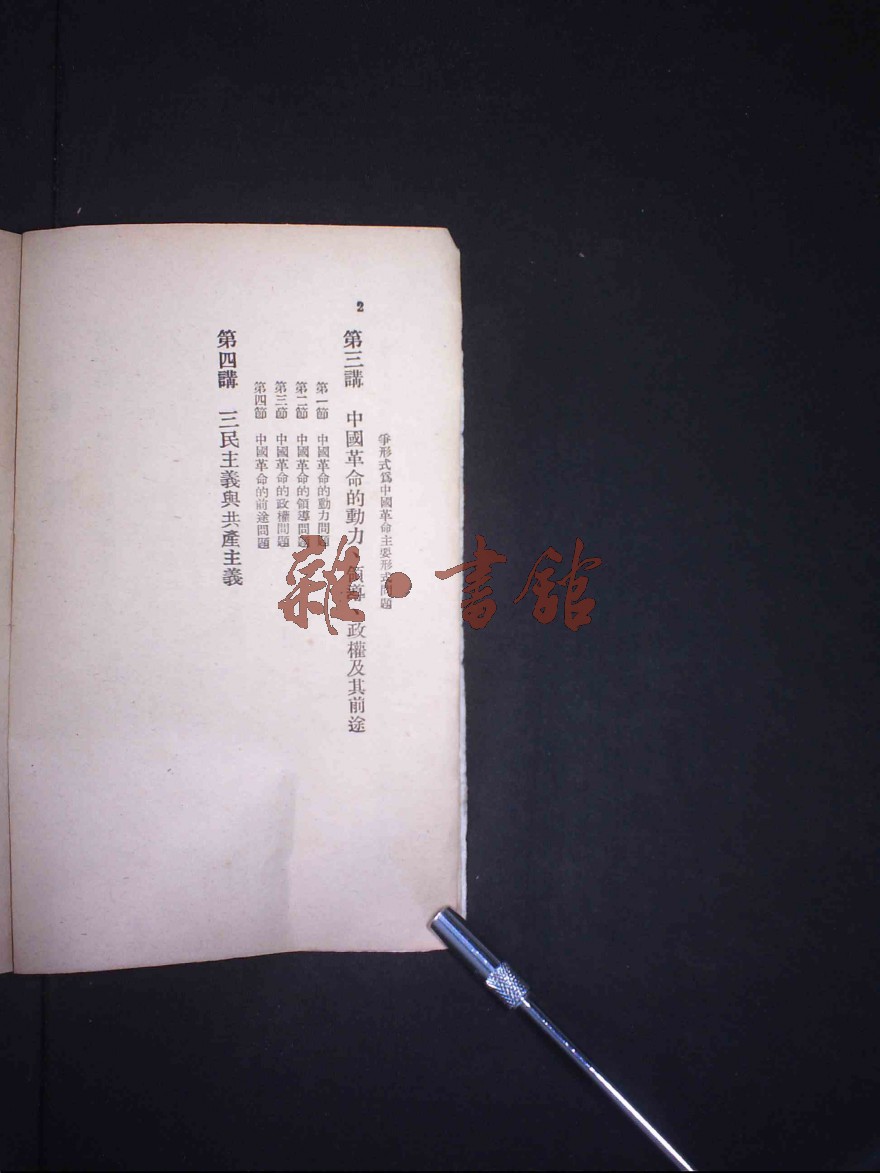 2
爭形式爲中國革命主要形式問題
第三講 中國革命的動力、領導、政權及其前途
第一節 中國革命的動力問題
第二節 中國革命的領導問題
第三節 中國革命的政權問題
第四節 中國革命的前途問題
第四講 三民主義與共產主義
雜·書館